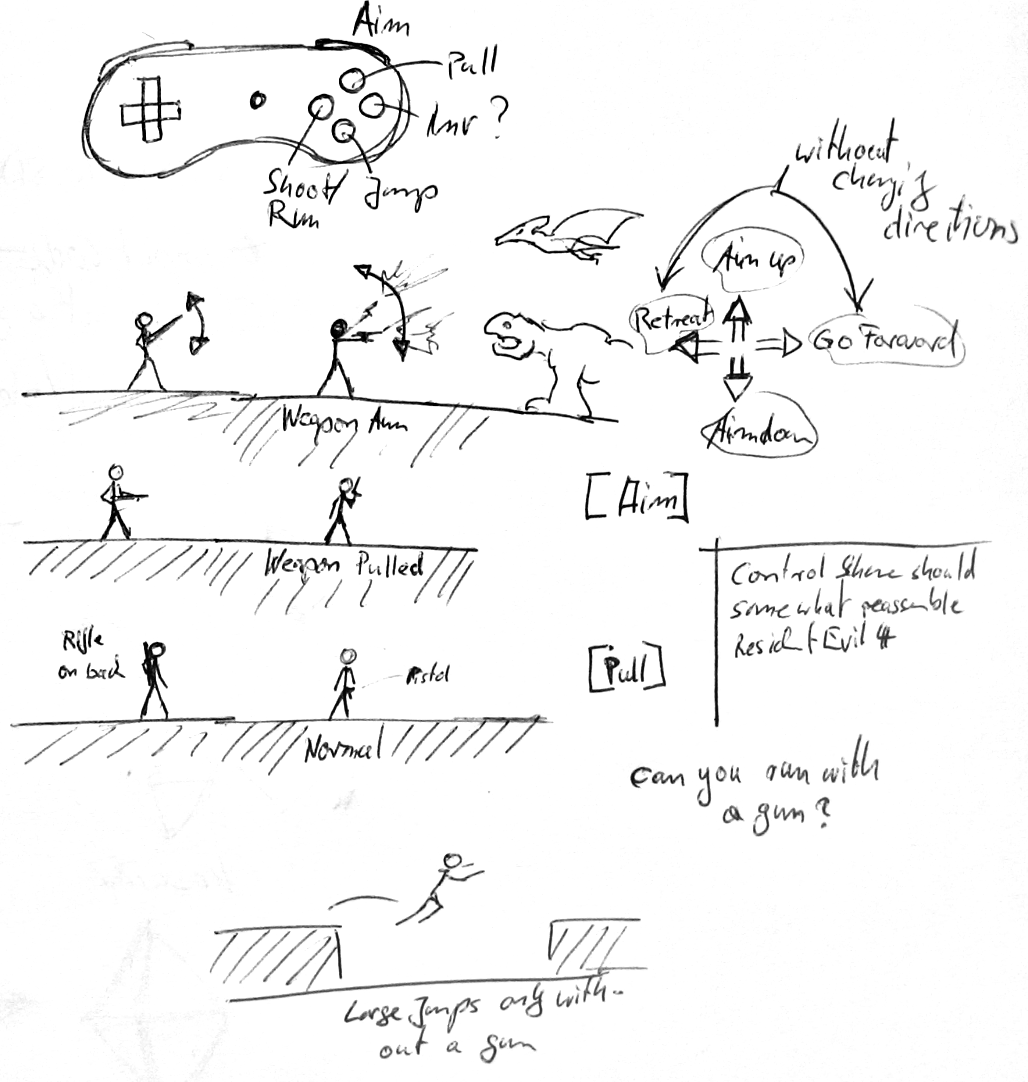 Aim
Pull
Inv ?
Shoot/ Jump
Run
without
changig
directions
Aim up
Retreat
Go Forward
Aim down
Weapon Aim
[Aim]
Weapon Pulled
Control Sheme should
somewhat reassemble
Resident Evil 4
Rifle
on back
Pistol
[Pull]
Normal
Can you run with
a gun?
Large Jumps only with-
out a gun